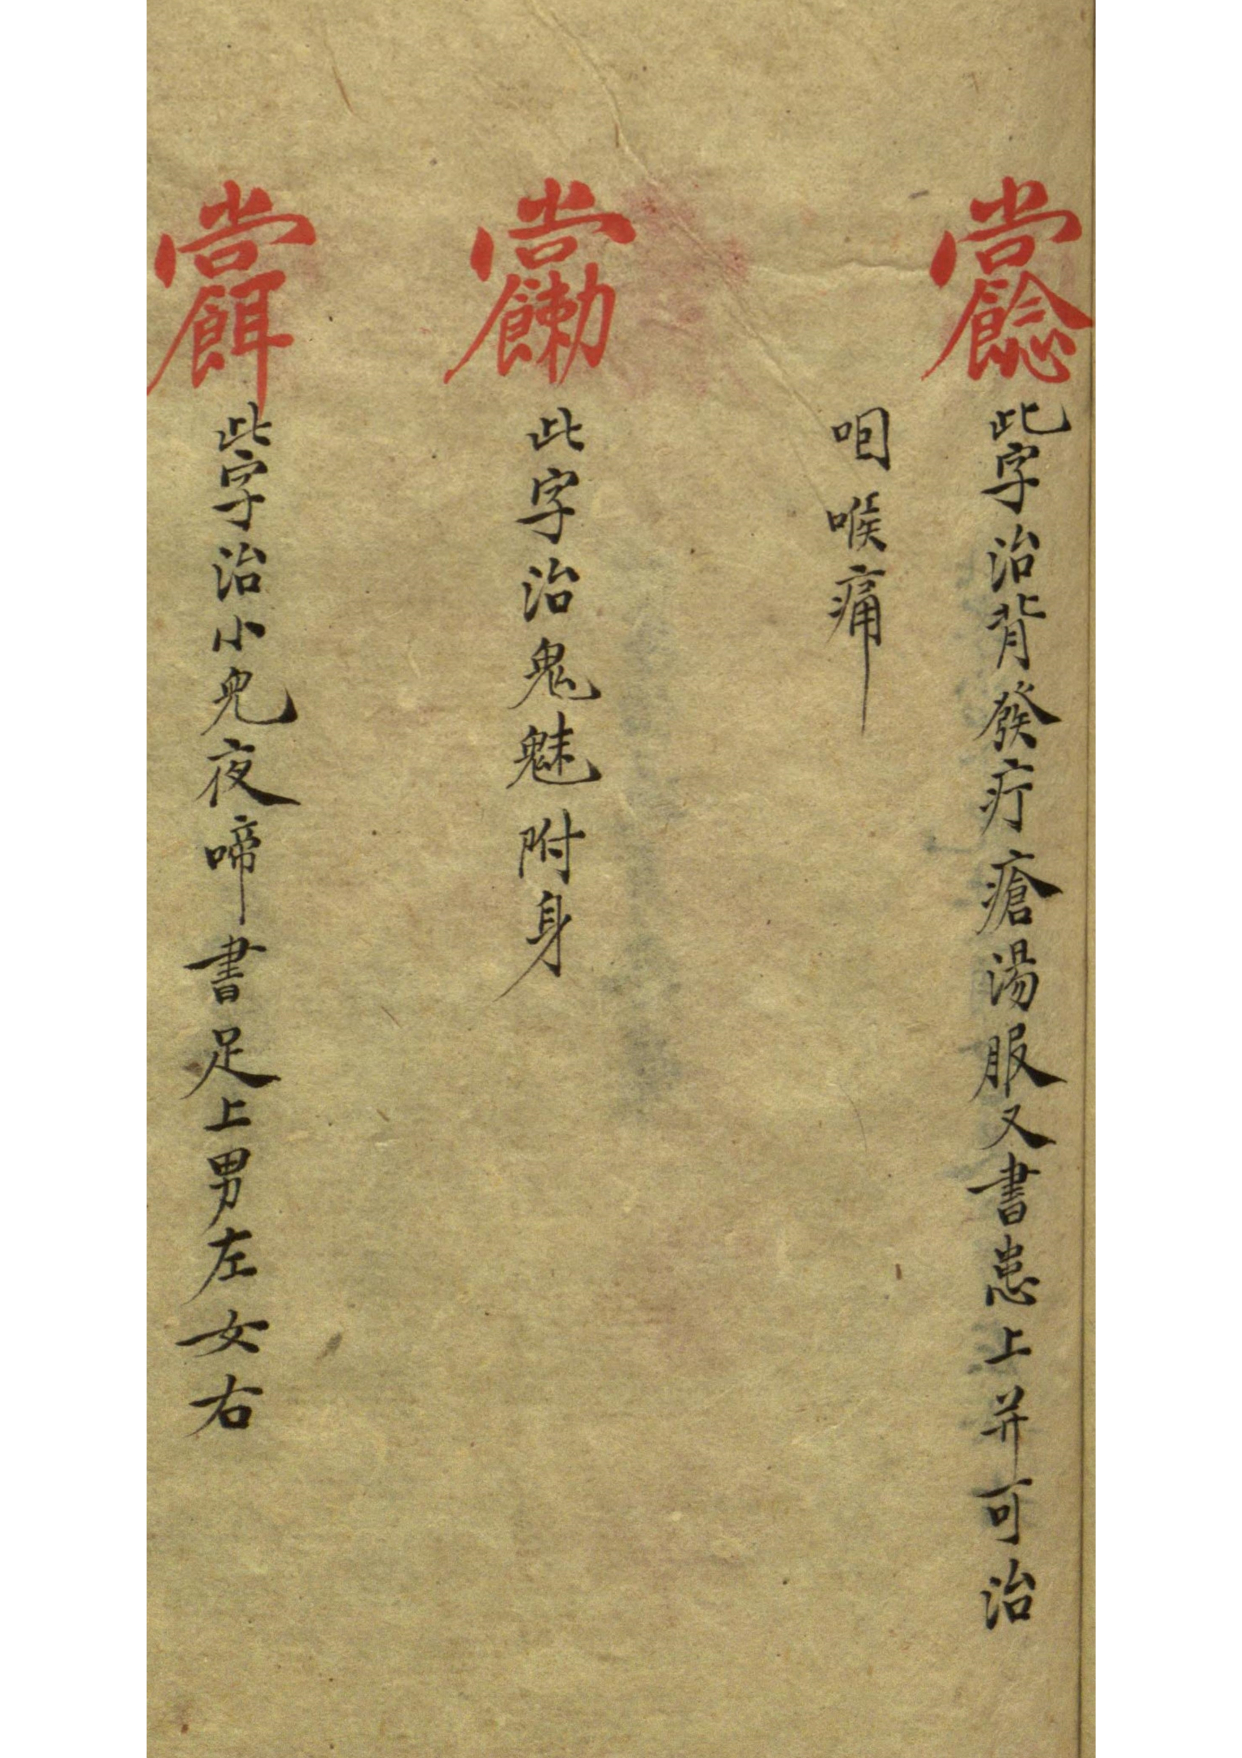 此字治背發疔瘡湯服又書患上并可治
咽喉痛
此字治鬼魅附身
此字治小兒夜啼書足上男左女右